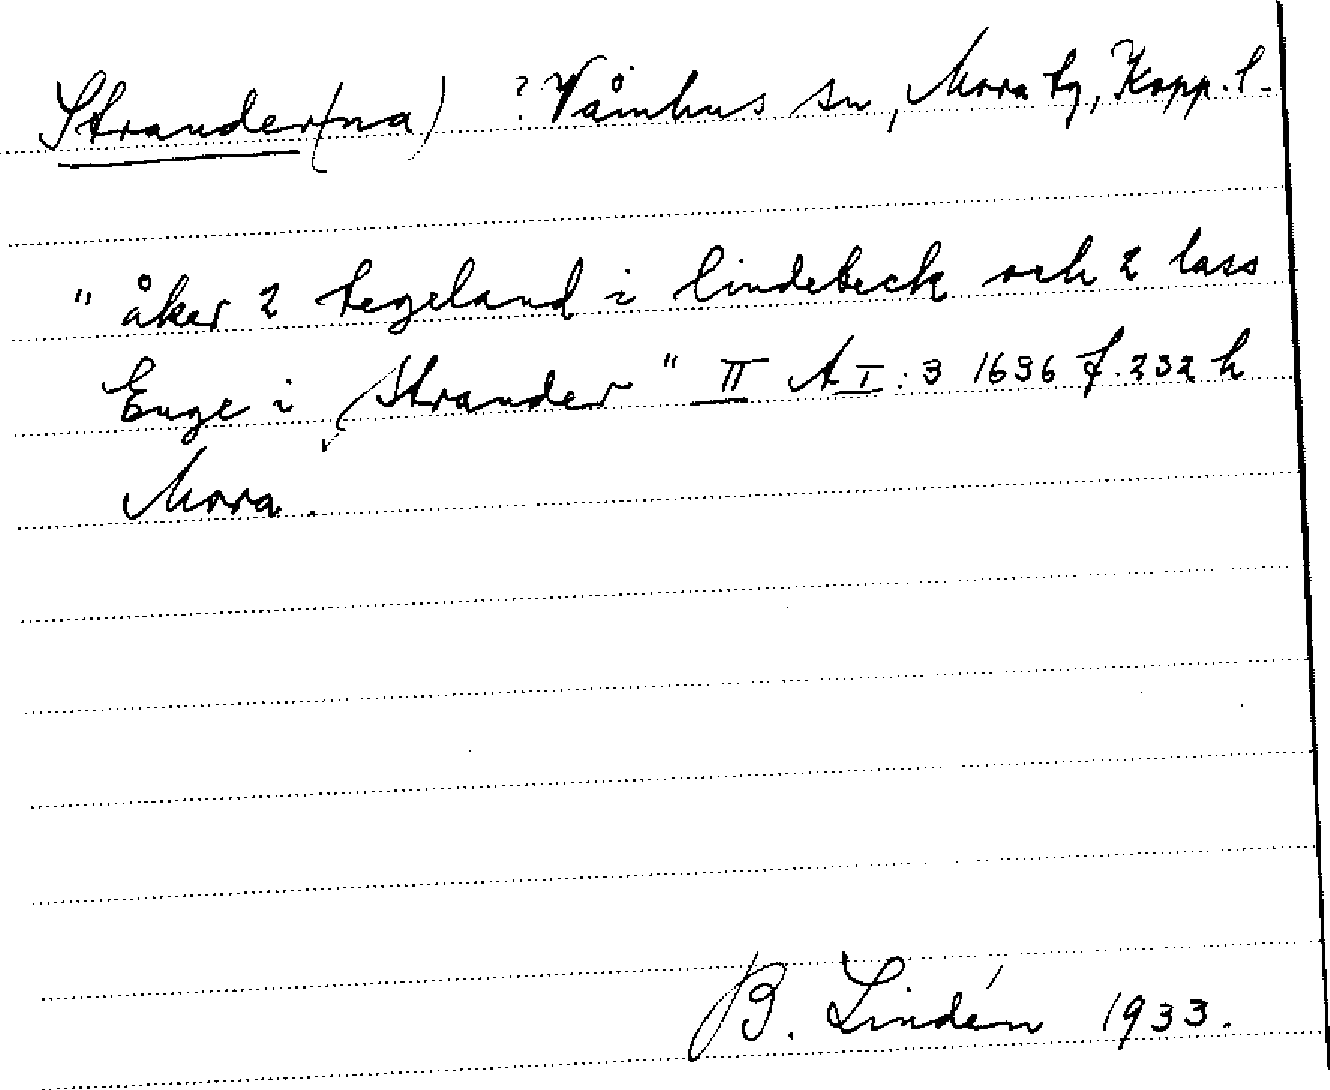 Strander(na) ? Våmhus sn, Mora tg, Kopp. l.
" åker 2 tegeland i lindebeck och 2 lass
Enge i Strander " II A I : 3 1696 f. 232 h
Mora.
B. Lindén 1933.